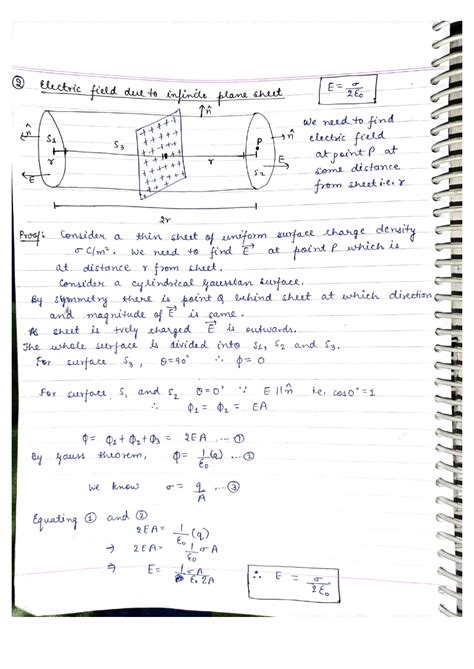 ② Electric field due to infinite plane sheet
E = σ/2ε₀
n̂
n̂ S₁ S₃ P n̂
r r
E S₂ E
2r
We need to find
electric field
at point P at
some distance
from sheet i.e. r
Proof: Consider a thin sheet of uniform surface charge density
σ C/m². We need to find E⃗ at point P which is
at distance r from sheet.
Consider a cylindrical Gaussian surface.
By symmetry there is point Q behind sheet at which direction
and magnitude of E⃗ is same.
As sheet is +vely charged E⃗ is outwards.
The whole surface is divided into S₁, S₂ and S₃.
For surface S₃, θ=90° ∴ ϕ = 0
For surface S₁ and S₂ θ=0° ∵ E ∥ n̂ i.e. cos0°=1
∴ ϕ₁ = ϕ₂ = EA
ϕ = ϕ₁ + ϕ₂ + ϕ₃ = 2EA ... ①
By Gauss theorem, ϕ = 1/ε₀ (q) ... ②
We know σ = q/A ... ③
Equating ① and ②
2EA = 1/ε₀ (q)
→ 2EA = 1/ε₀ σA
⇒ E = 1 σA/ε₀ 2A
∴ E = σ/2ε₀